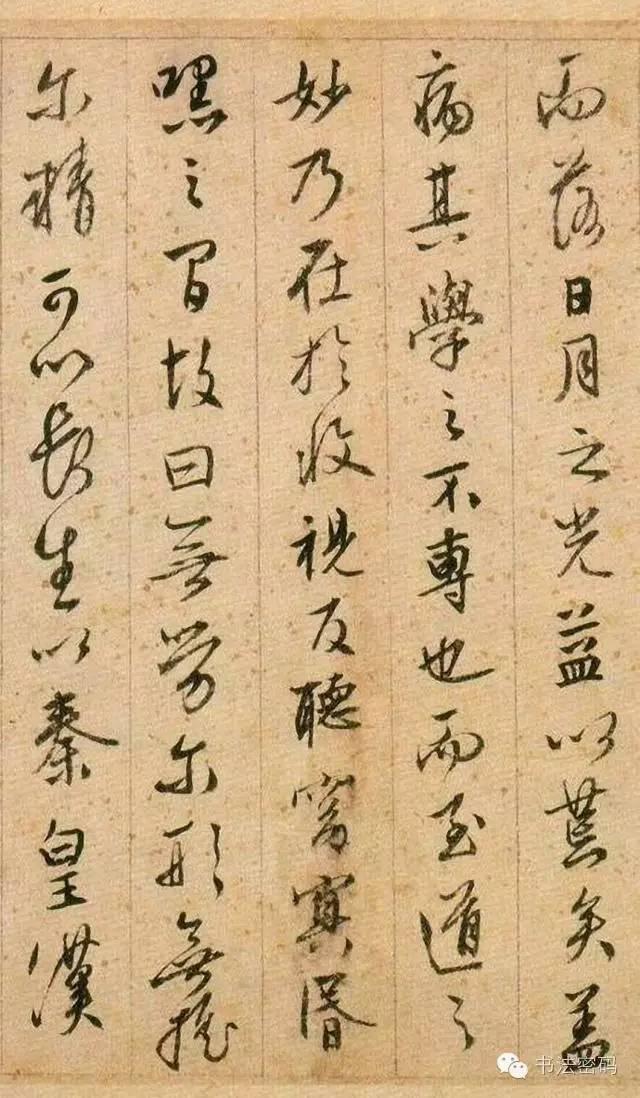 而落日月之光益以荒矣蓋
病其學之不專也而至道之
妙乃在於收視反聽窈冥昏
嘿之間故曰無勞尔形無搖
尔精可以長生以秦皇漢
书法密码